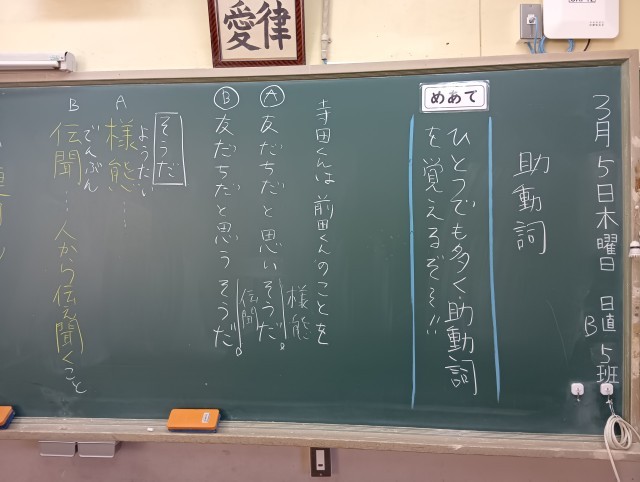 愛律
3月5日木曜日 日直 5班
B
助動詞
めあて
ひとつでも多く助動詞
を覚えるぞぞ!!
寺田くんは前田くんのことを
Ⓐ友だちだと思いそうだ。
様態
Ⓑ友だちだと思うそうだ。
伝聞
そうだ
ようたい
A 様態…
でんぶん
B 伝聞…人から伝え聞くこと